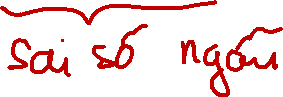 sai số ngẫu